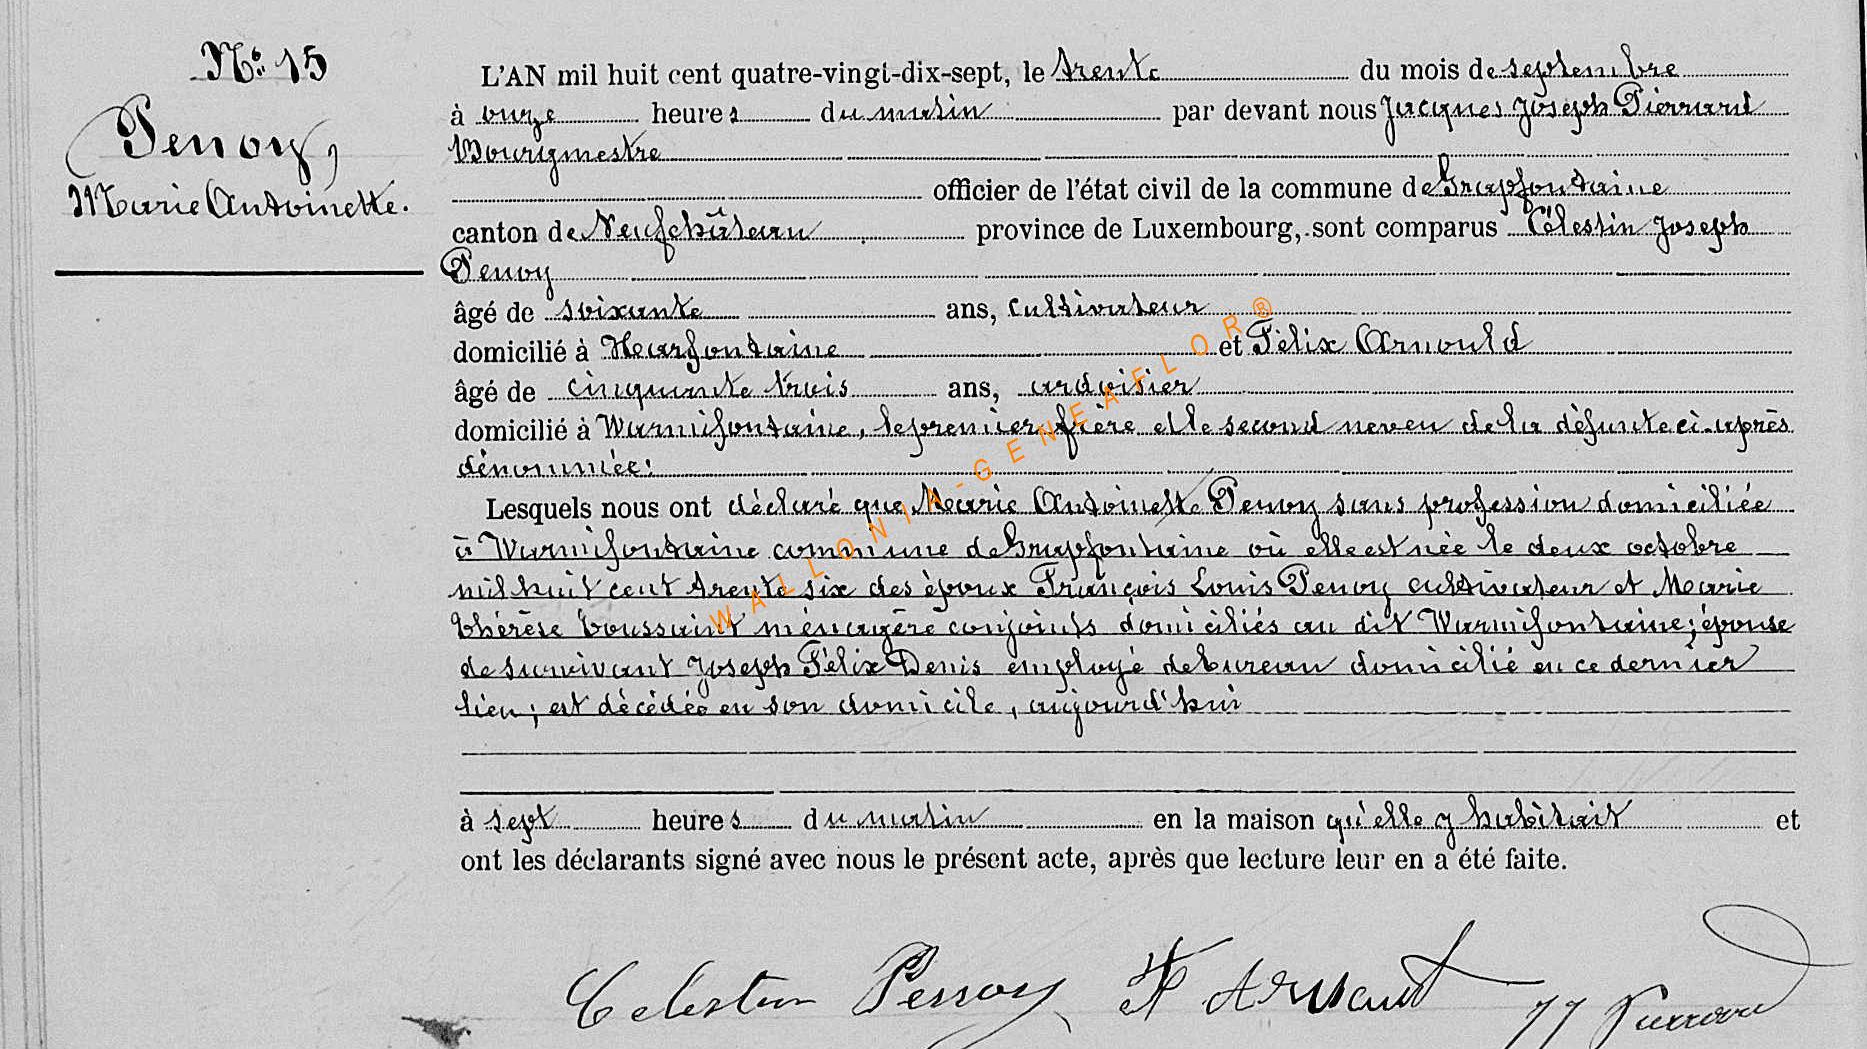 N°. 15
Penoy,
Marie Antoinette.
L'AN mil huit cent quatre-vingt-dix-sept, le trente du mois de septembre
à onze heures du matin par devant nous Jacques Joseph Pierrard
Bourgmestre
officier de l'état civil de la commune de Grapfontaine
canton de Neufchâteau province de Luxembourg, sont comparus Célestin Joseph
Penoy
âgé de soixante ans, cultivateur
domicilié à Harfontaine et Félix Arnould
âgé de cinquante trois ans, ardoisier
domicilié à Warmifontaine, le premier frère et le second neveu de la défunte ci-après
dénommée:
Lesquels nous ont déclaré que Marie Antoinette Penoy sans profession domiciliée
à Warmifontaine commune de Grapfontaine où elle est née le deux octobre
mil huit cent trente six des époux François Louis Penoy cultivateur et Marie
Thérèse Toussaint ménagère conjoints domiciliés au dit Warmifontaine; épouse
de survivant Joseph Félix Denis employé de bureau domicilié en ce dernier
lieu; est décédée en son domicile, aujourd'hui
à sept heures du matin en la maison qu'elle y habitait et
ont les déclarants signé avec nous le présent acte, après que lecture leur en a été faite.
Celestin Penoy F Arnould JJ Pierrard
WALLONIA-GENEAFLOR®